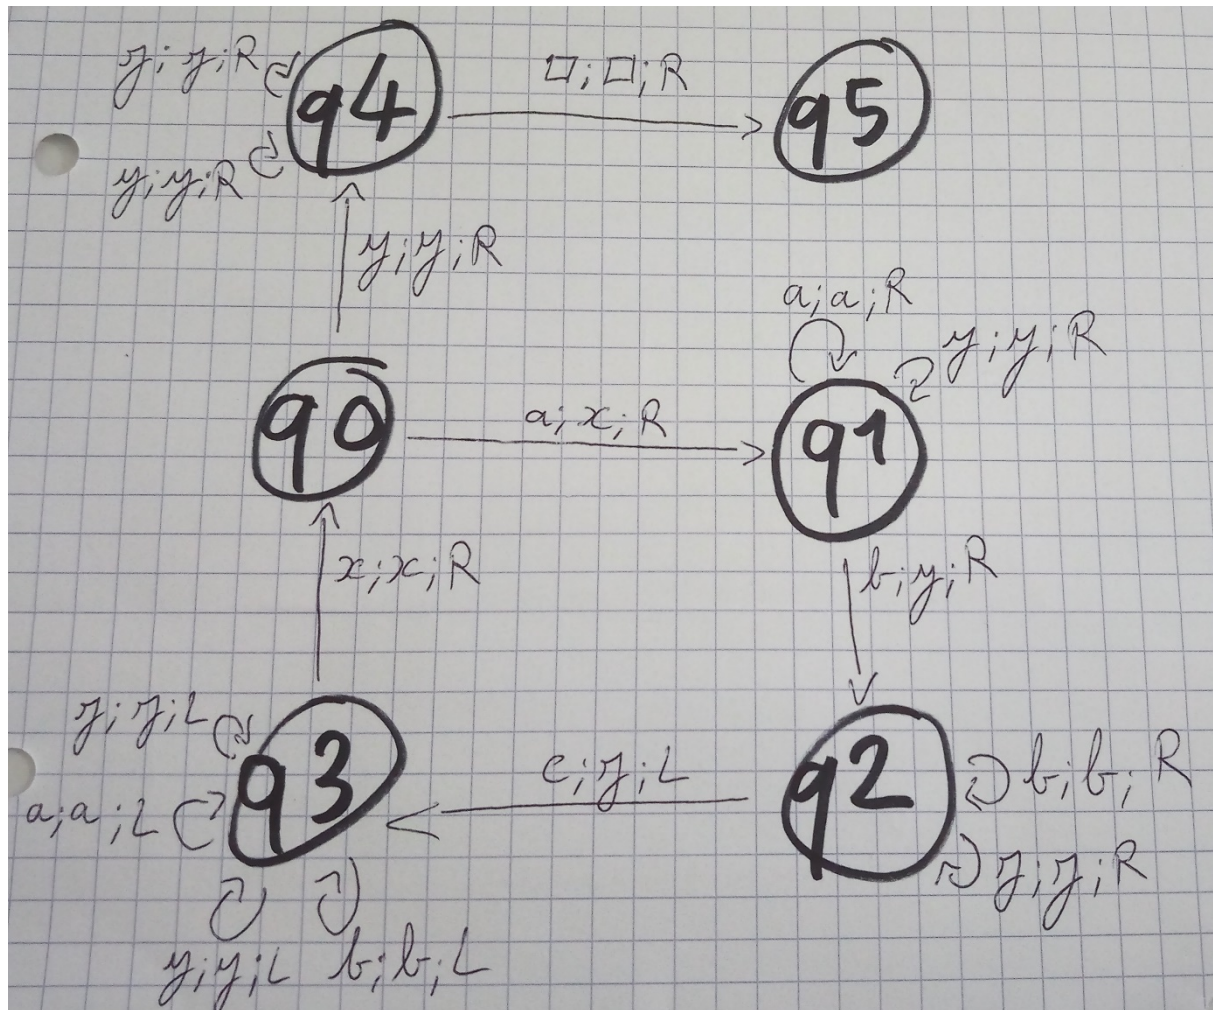 z; z; R
q4
□; □; R
q5
y; y; R
y; y; R
a; a; R
y; y; R
q0
a; x; R
q1
x; x; R
b; y; R
z; z; L
q3
c; z; L
q2
b; b; R
a; a; L
z; z; R
y; y; L
b; b; L